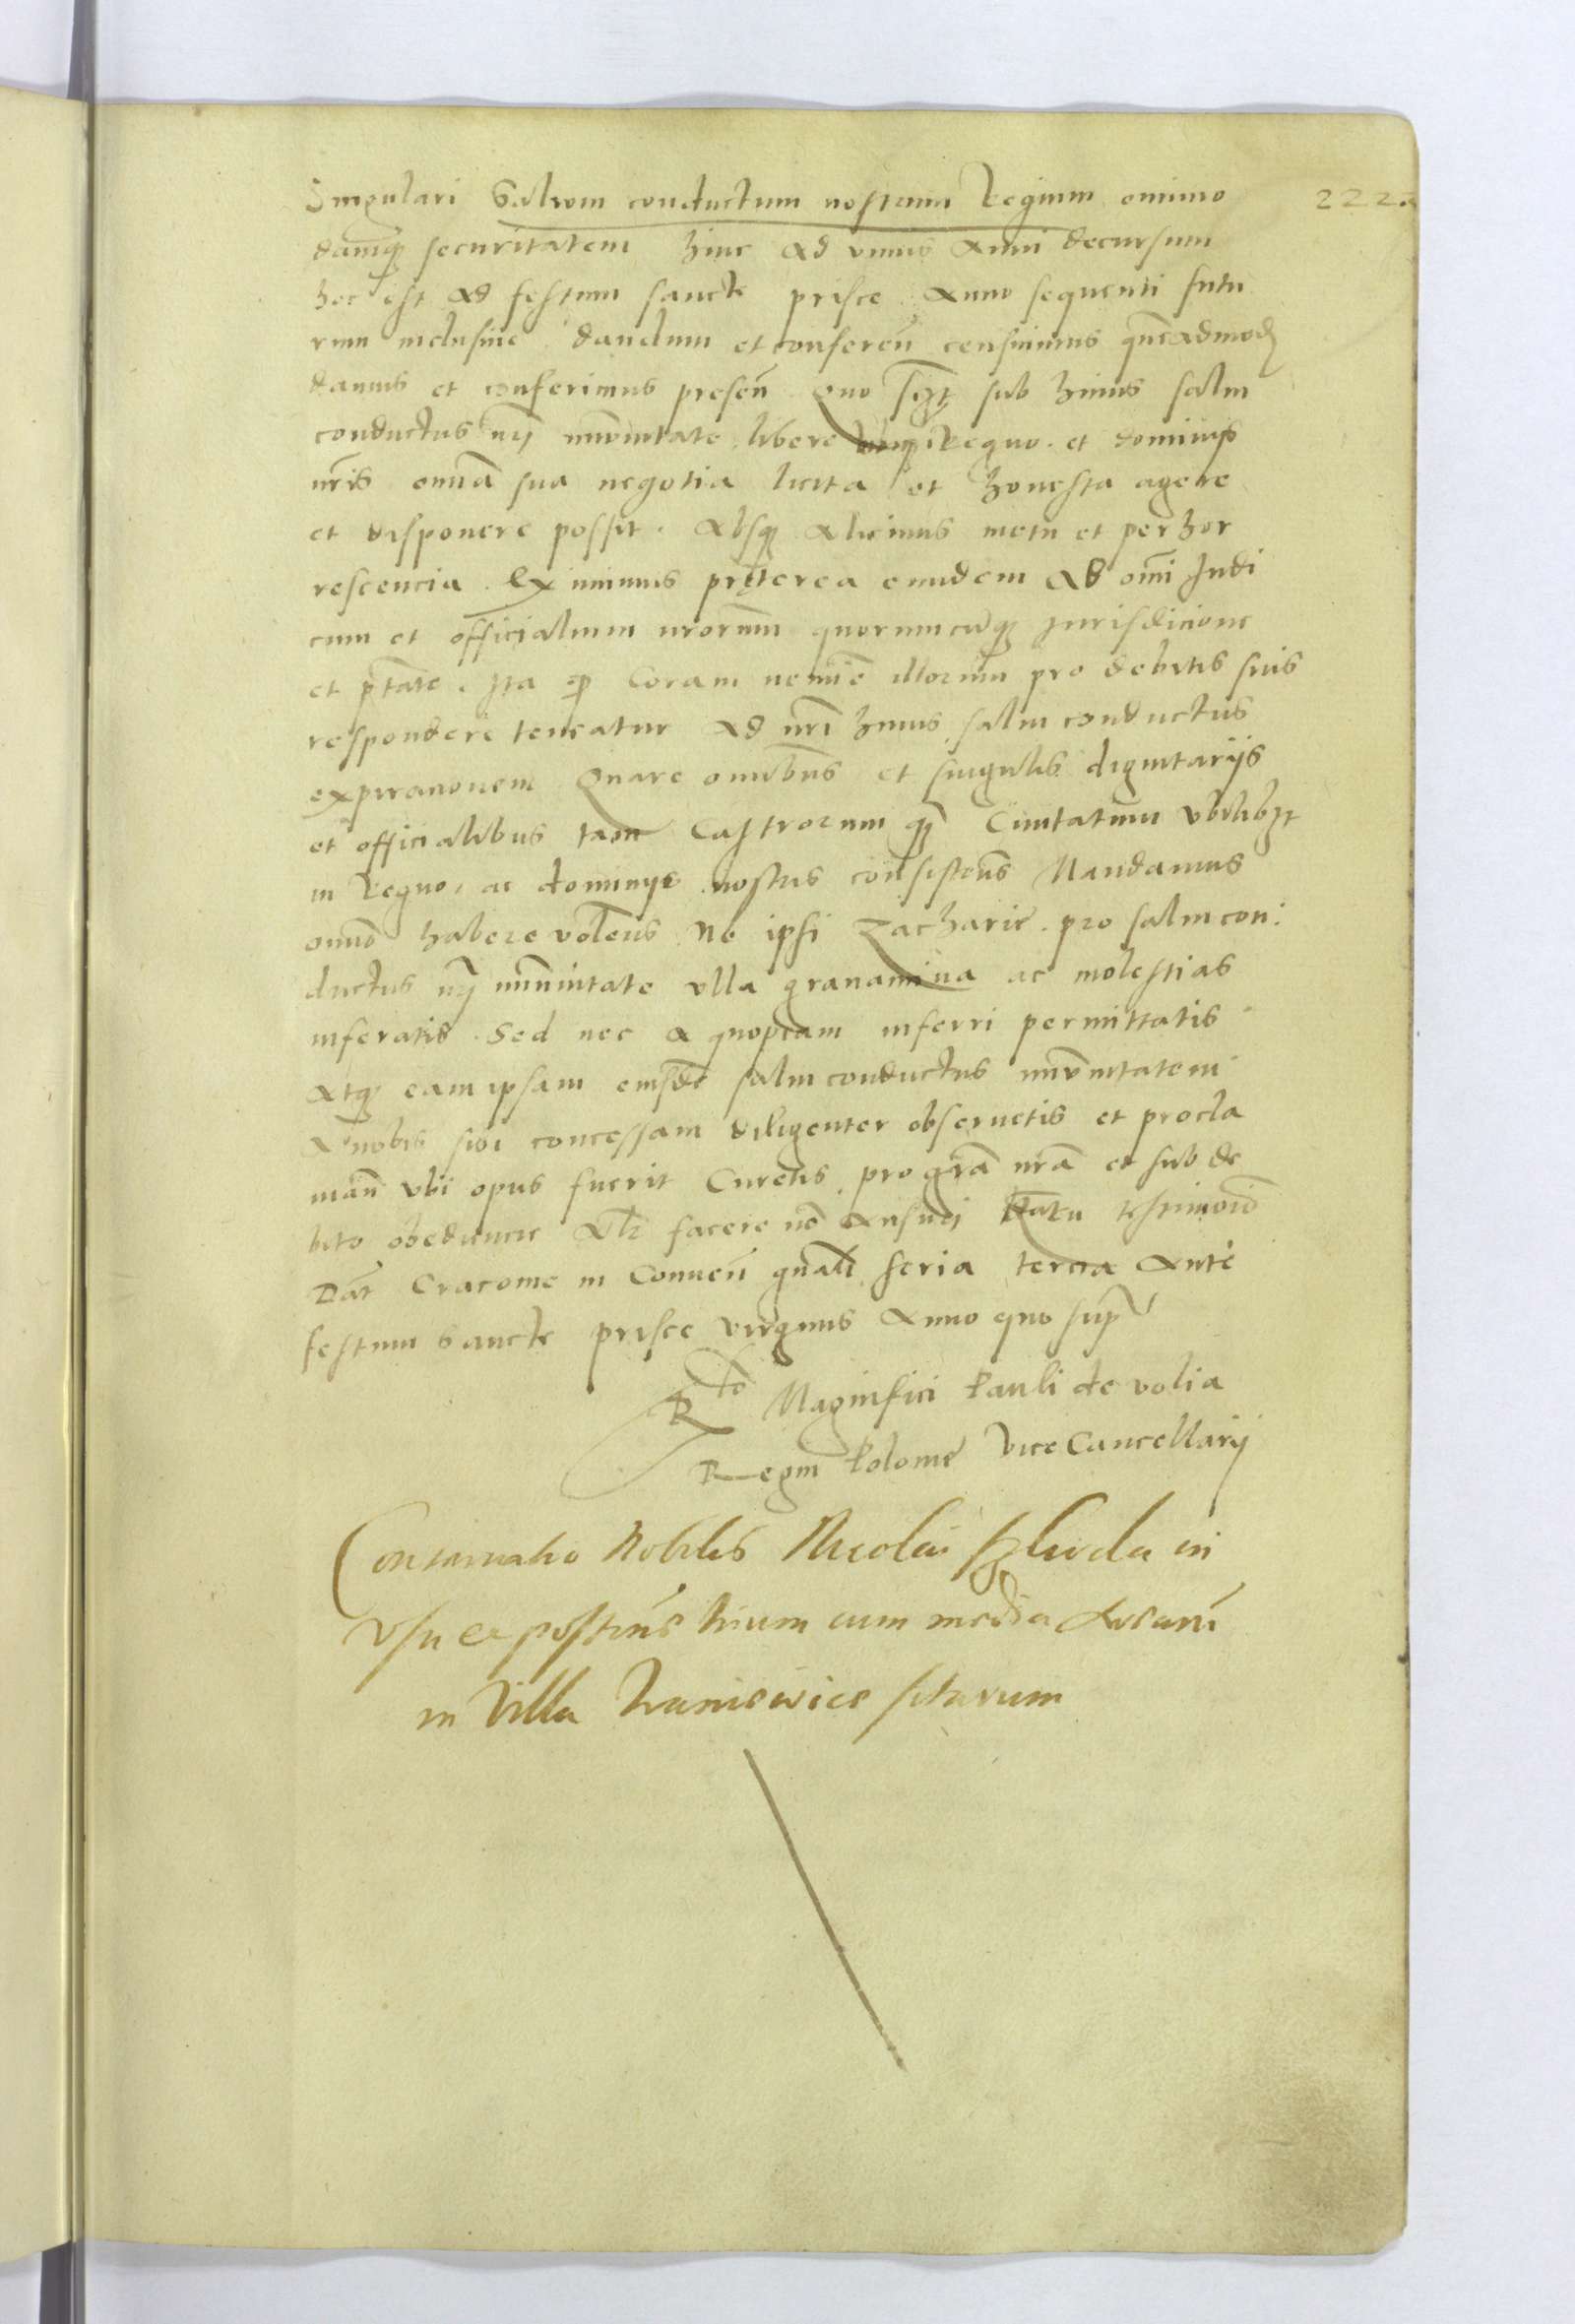 Singulari Salvum conductum nostrum Regium omnimo 222.
damq securitatem hinc ad unius anni decursum
hoc est ad festum sancte prisce anno sequenti futu
rum inclusive dandum et conferen censuimus quemadmod
damus et conferimus presen Quo sub huius salvi
conductus nri immunitate libere ubiq Regno et dominijs
nris omnia sua negotia licita et honesta agere
et disponere possit. Absq alicuius metu et perhor
rescencia. Eximimus preterea eundem ab omni Judi
cum et officialium nrorum quorumcumq Jurisdicione
et ptate. Ita qp Coram nemine illorum pro debitis suis
respondere teneatur ad nri huius salvi conductus
expiracionem Quare omnibus et singulis dignitarijs
et officialibus tam Castrorum qm Civitatum ubilibzt
in Regno ac dominijs nostris consisten Mandamus
omno habere volens Ne ipsi Zacharie pro salvi con:
ductus nri immunitate ulla gravamina ac molestias
inferatis. Sed nec a quopiam inferri permittatis
atq eam ipsam eiusde salvi conductus immunitatem
a nobis sibi concessam diligenter observetis et procla
man ubi opus fuerit Curetis pro gra nra et sub de
bito obediencie Alr facere no ausuri testimonio
Dat Cracovie in Conven gnali feria tercia Ante
festum Sancte prisce virginis Anno quo sup
Rto Magnifici Pauli de volia
Regni Polonie Vice Cancellarij
Conservatio Nobilis Nicolai in
usu et trium cum media
in Villa sitarum